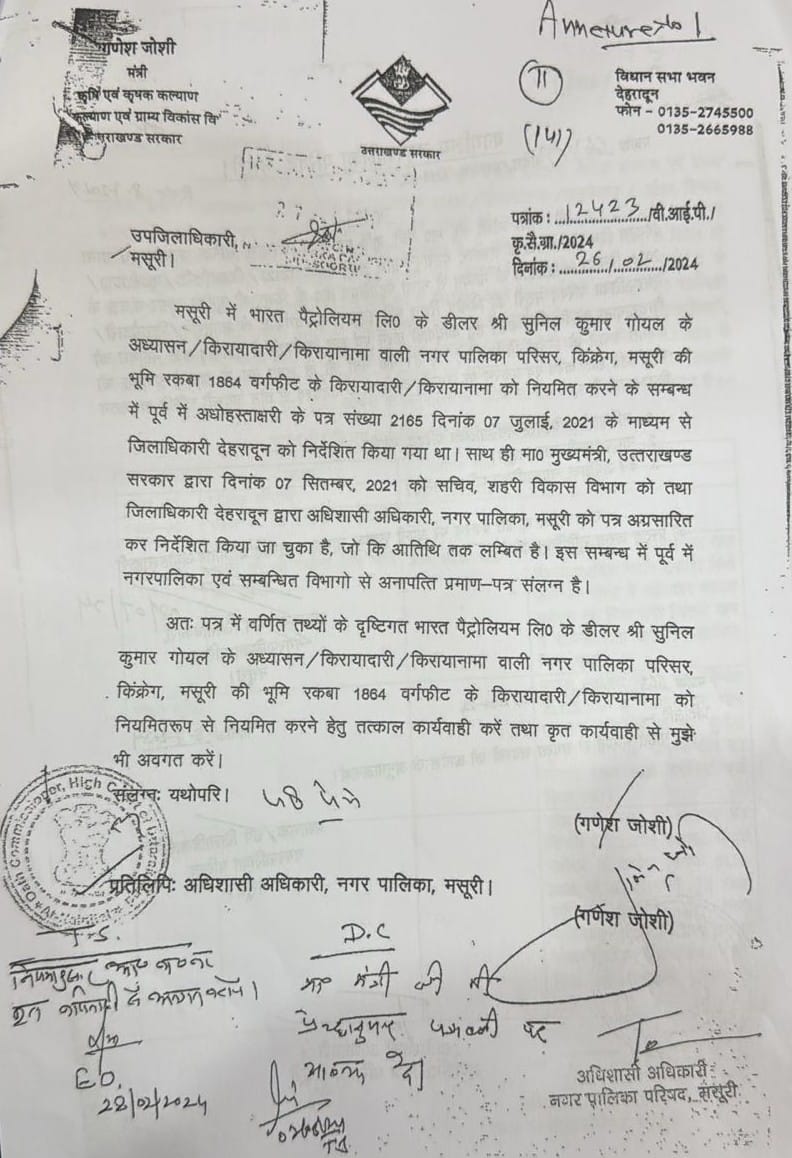 Annexure No 1
गणेश जोशी
मंत्री
कृषि एवं कृषक कल्याण
कल्याण एवं ग्राम्य विकास वि
उत्तराखण्ड सरकार
उत्तराखण्ड सरकार
11
(141)
विधान सभा भवन
देहरादून
फोन – 0135-2745500
0135-2665988
पत्रांक : 12423/वी.आई.पी./
कृ.सै.ग्रा./2024
दिनांक : 26/02/2024
उपजिलाधिकारी,
मसूरी।
मसूरी में भारत पैट्रोलियम लि0 के डीलर श्री सुनिल कुमार गोयल के
अध्यासन/किरायादारी/किरायानामा वाली नगर पालिका परिसर, किंक्रेग, मसूरी की
भूमि रकबा 1864 वर्गफीट के किरायादारी/किरायानामा को नियमित करने के सम्बन्ध
में पूर्व में अधोहस्ताक्षरी के पत्र संख्या 2165 दिनांक 07 जुलाई, 2021 के माध्यम से
जिलाधिकारी देहरादून को निर्देशित किया गया था। साथ ही मा0 मुख्यमंत्री, उत्तराखण्ड
सरकार द्वारा दिनांक 07 सितम्बर, 2021 को सचिव, शहरी विकास विभाग को तथा
जिलाधिकारी देहरादून द्वारा अधिशासी अधिकारी, नगर पालिका, मसूरी को पत्र अग्रसारित
कर निर्देशित किया जा चुका है, जो कि आतिथि तक लम्बित है। इस सम्बन्ध में पूर्व में
नगरपालिका एवं सम्बन्धित विभागो से अनापत्ति प्रमाण–पत्र संलग्न है।
अतः पत्र में वर्णित तथ्यों के दृष्टिगत भारत पैट्रोलियम लि0 के डीलर श्री सुनिल
कुमार गोयल के अध्यासन/किरायादारी/किरायानामा वाली नगर पालिका परिसर,
किंक्रेग, मसूरी की भूमि रकबा 1864 वर्गफीट के किरायादारी/किरायानामा को
नियमितरूप से नियमित करने हेतु तत्काल कार्यवाही करें तथा कृत कार्यवाही से मुझे
भी अवगत करें।
संलग्नः यथोपरि।
(गणेश जोशी)
Oath Commissioner, High Court of
प्रतिलिपिः अधिशासी अधिकारी, नगर पालिका, मसूरी।
(गणेश जोशी)
T.S.
D.C
E.O.
28/02/2024
अधिशासी अधिकारी
नगर पालिका परिषद, मसूरी